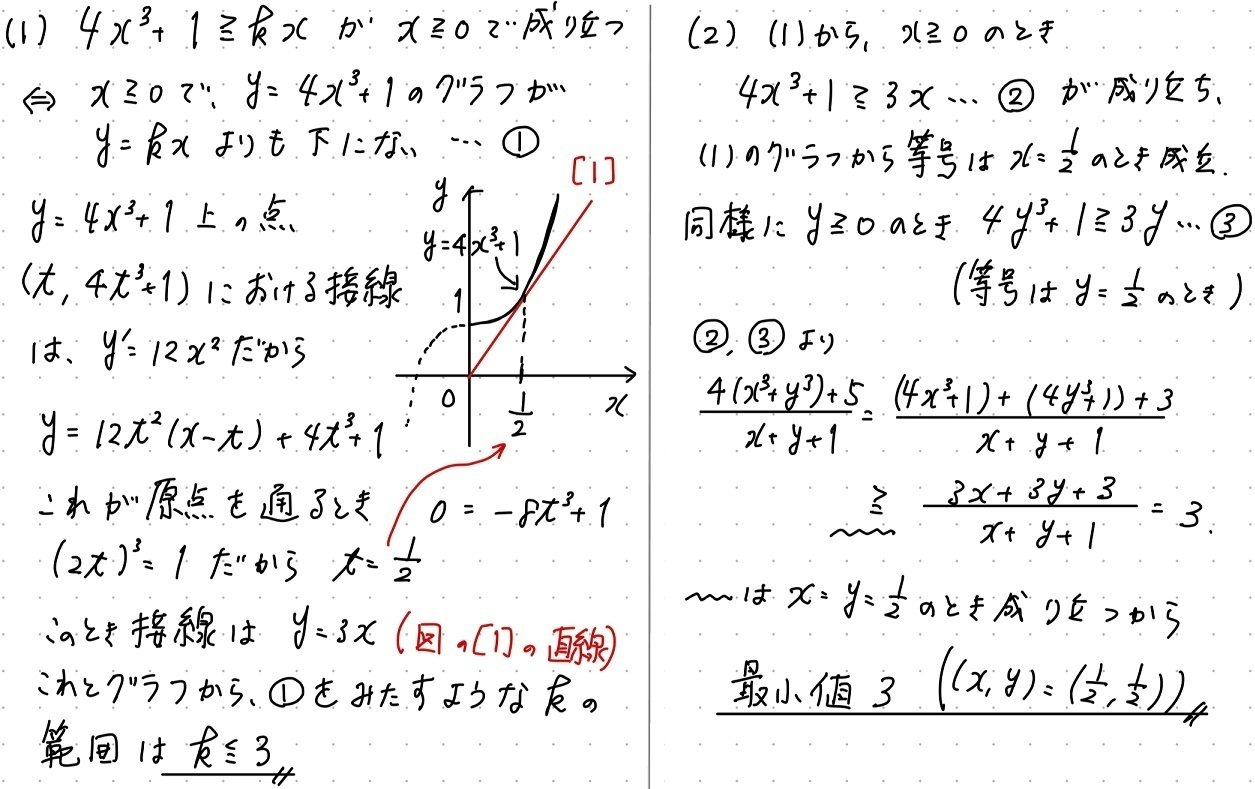 (1) 4x³+1≧kx が x≧0 で成り立つ
⇔ x≧0 で、y=4x³+1のグラフが
y=kx よりも下にない … ①
y=4x³+1 上の点
(t, 4t³+1) における接線
は、y'=12x² だから
y=12t²(x-t)+4t³+1
これが原点を通るとき 0=-8t³+1
(2t)³=1 だから t=1/2
このとき接線は y=3x (図の[1]の直線)
これとグラフから、①をみたすようなkの
範囲は k≦3
[1]
y
y=4x³+1
1
0
1/2
x
(2) (1)から、x≧0 のとき
4x³+1≧3x … ② が成り立ち、
(1)のグラフから等号は x=1/2 のとき成立.
同様に y≧0 のとき 4y³+1≧3y … ③
(等号は y=1/2 のとき)
②, ③ より
(4(x³+y³)+5)/(x+y+1) = ((4x³+1)+(4y³+1)+3)/(x+y+1)
≧ (3x+3y+3)/(x+y+1) = 3.
〰〰は x=y=1/2 のとき成り立つから
最小値 3 ((x,y)=(1/2,1/2))